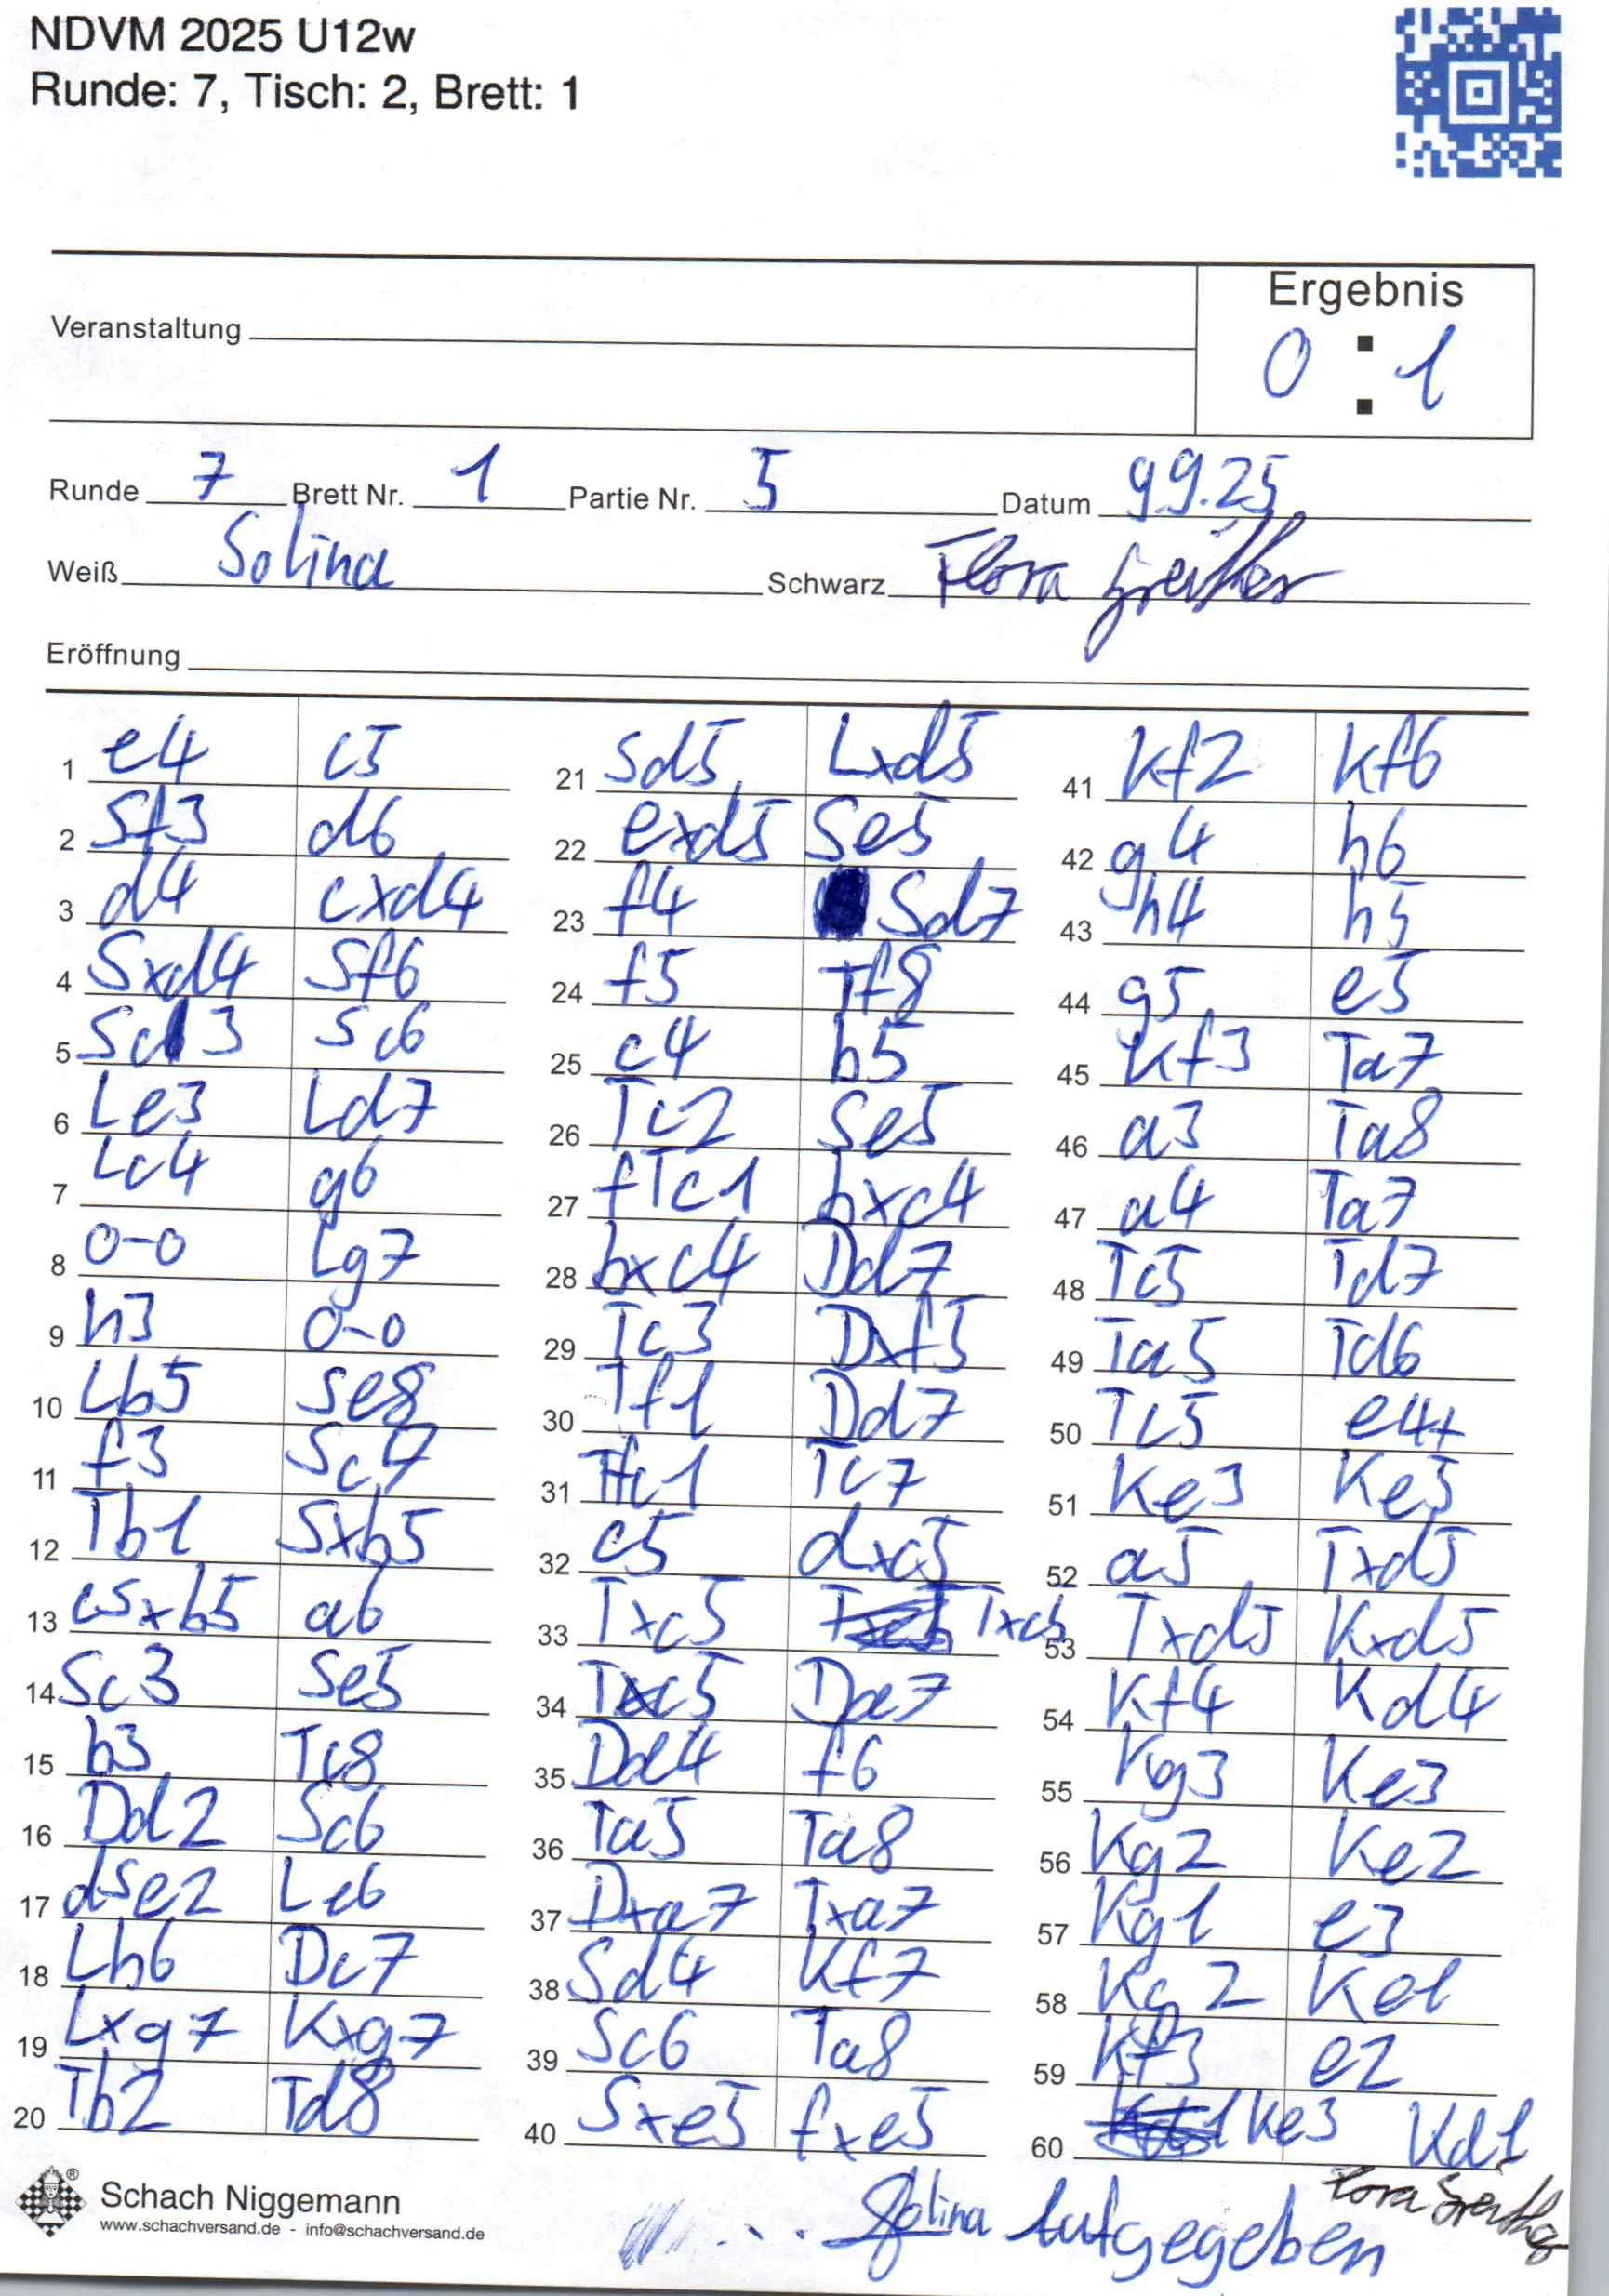 NDVM 2025 U12w
Runde: 7, Tisch: 2, Brett: 1
Ergebnis
0 : 1
Veranstaltung
Runde 7 Brett Nr. 1 Partie Nr. 5 Datum 9 9.25
Weiß Solina Schwarz Flora Greither
Eröffnung
1 e4 c5
2 Sf3 d6
3 d4 cxd4
4 Sxd4 Sf6
5 Sc3 Sc6
6 Le3 Ld7
7 Lc4 g6
8 0-0 Lg7
9 h3 0-0
10 Lb5 Se8
11 f3 Sc7
12 Tb1 Sxb5
13 csxb5 a6
14 Sc3 Se5
15 b3 Tc8
16 Dd2 Sc6
17 dSe2 Le6
18 Lh6 Dc7
19 Lxg7 Kxg7
20 Tb2 Td8
21 Sd5 Lxd5
22 exd5 Se5
23 f4 Sd7
24 f5 Tf8
25 c4 b5
26 Tc2 Se5
27 fTc1 bxc4
28 bxc4 Dd7
29 Tc3 Dxf5
30 Tf1 Dd7
31 Tfc1 Tc7
32 c5 dxc5
33 Txc5 Txc5
34 Txc5 Da7
35 Dd4 f6
36 Ta5 Ta8
37 Dxa7 Txa7
38 Sd4 Kf7
39 Sc6 Ta8
40 Sxe5 fxe5
41 Kf2 Kf6
42 g4 h6
43 h4 h5
44 g5 e5
45 Kf3 Ta7
46 a3 Ta8
47 a4 Ta7
48 Tc5 Td7
49 Ta5 Td6
50 Tc5 e4+
51 Ke3 Ke5
52 a5 Txd5
53 Txd5 Kxd5
54 Kf4 Kd4
55 Kg3 Ke3
56 Kg2 Ke2
57 Kg1 e3
58 Kg2 Ke1
59 Kf3 e2
60 Ke3 Kd1
Schach Niggemann
www.schachversand.de - info@schachversand.de
Solina Aufgegeben Flora Greither